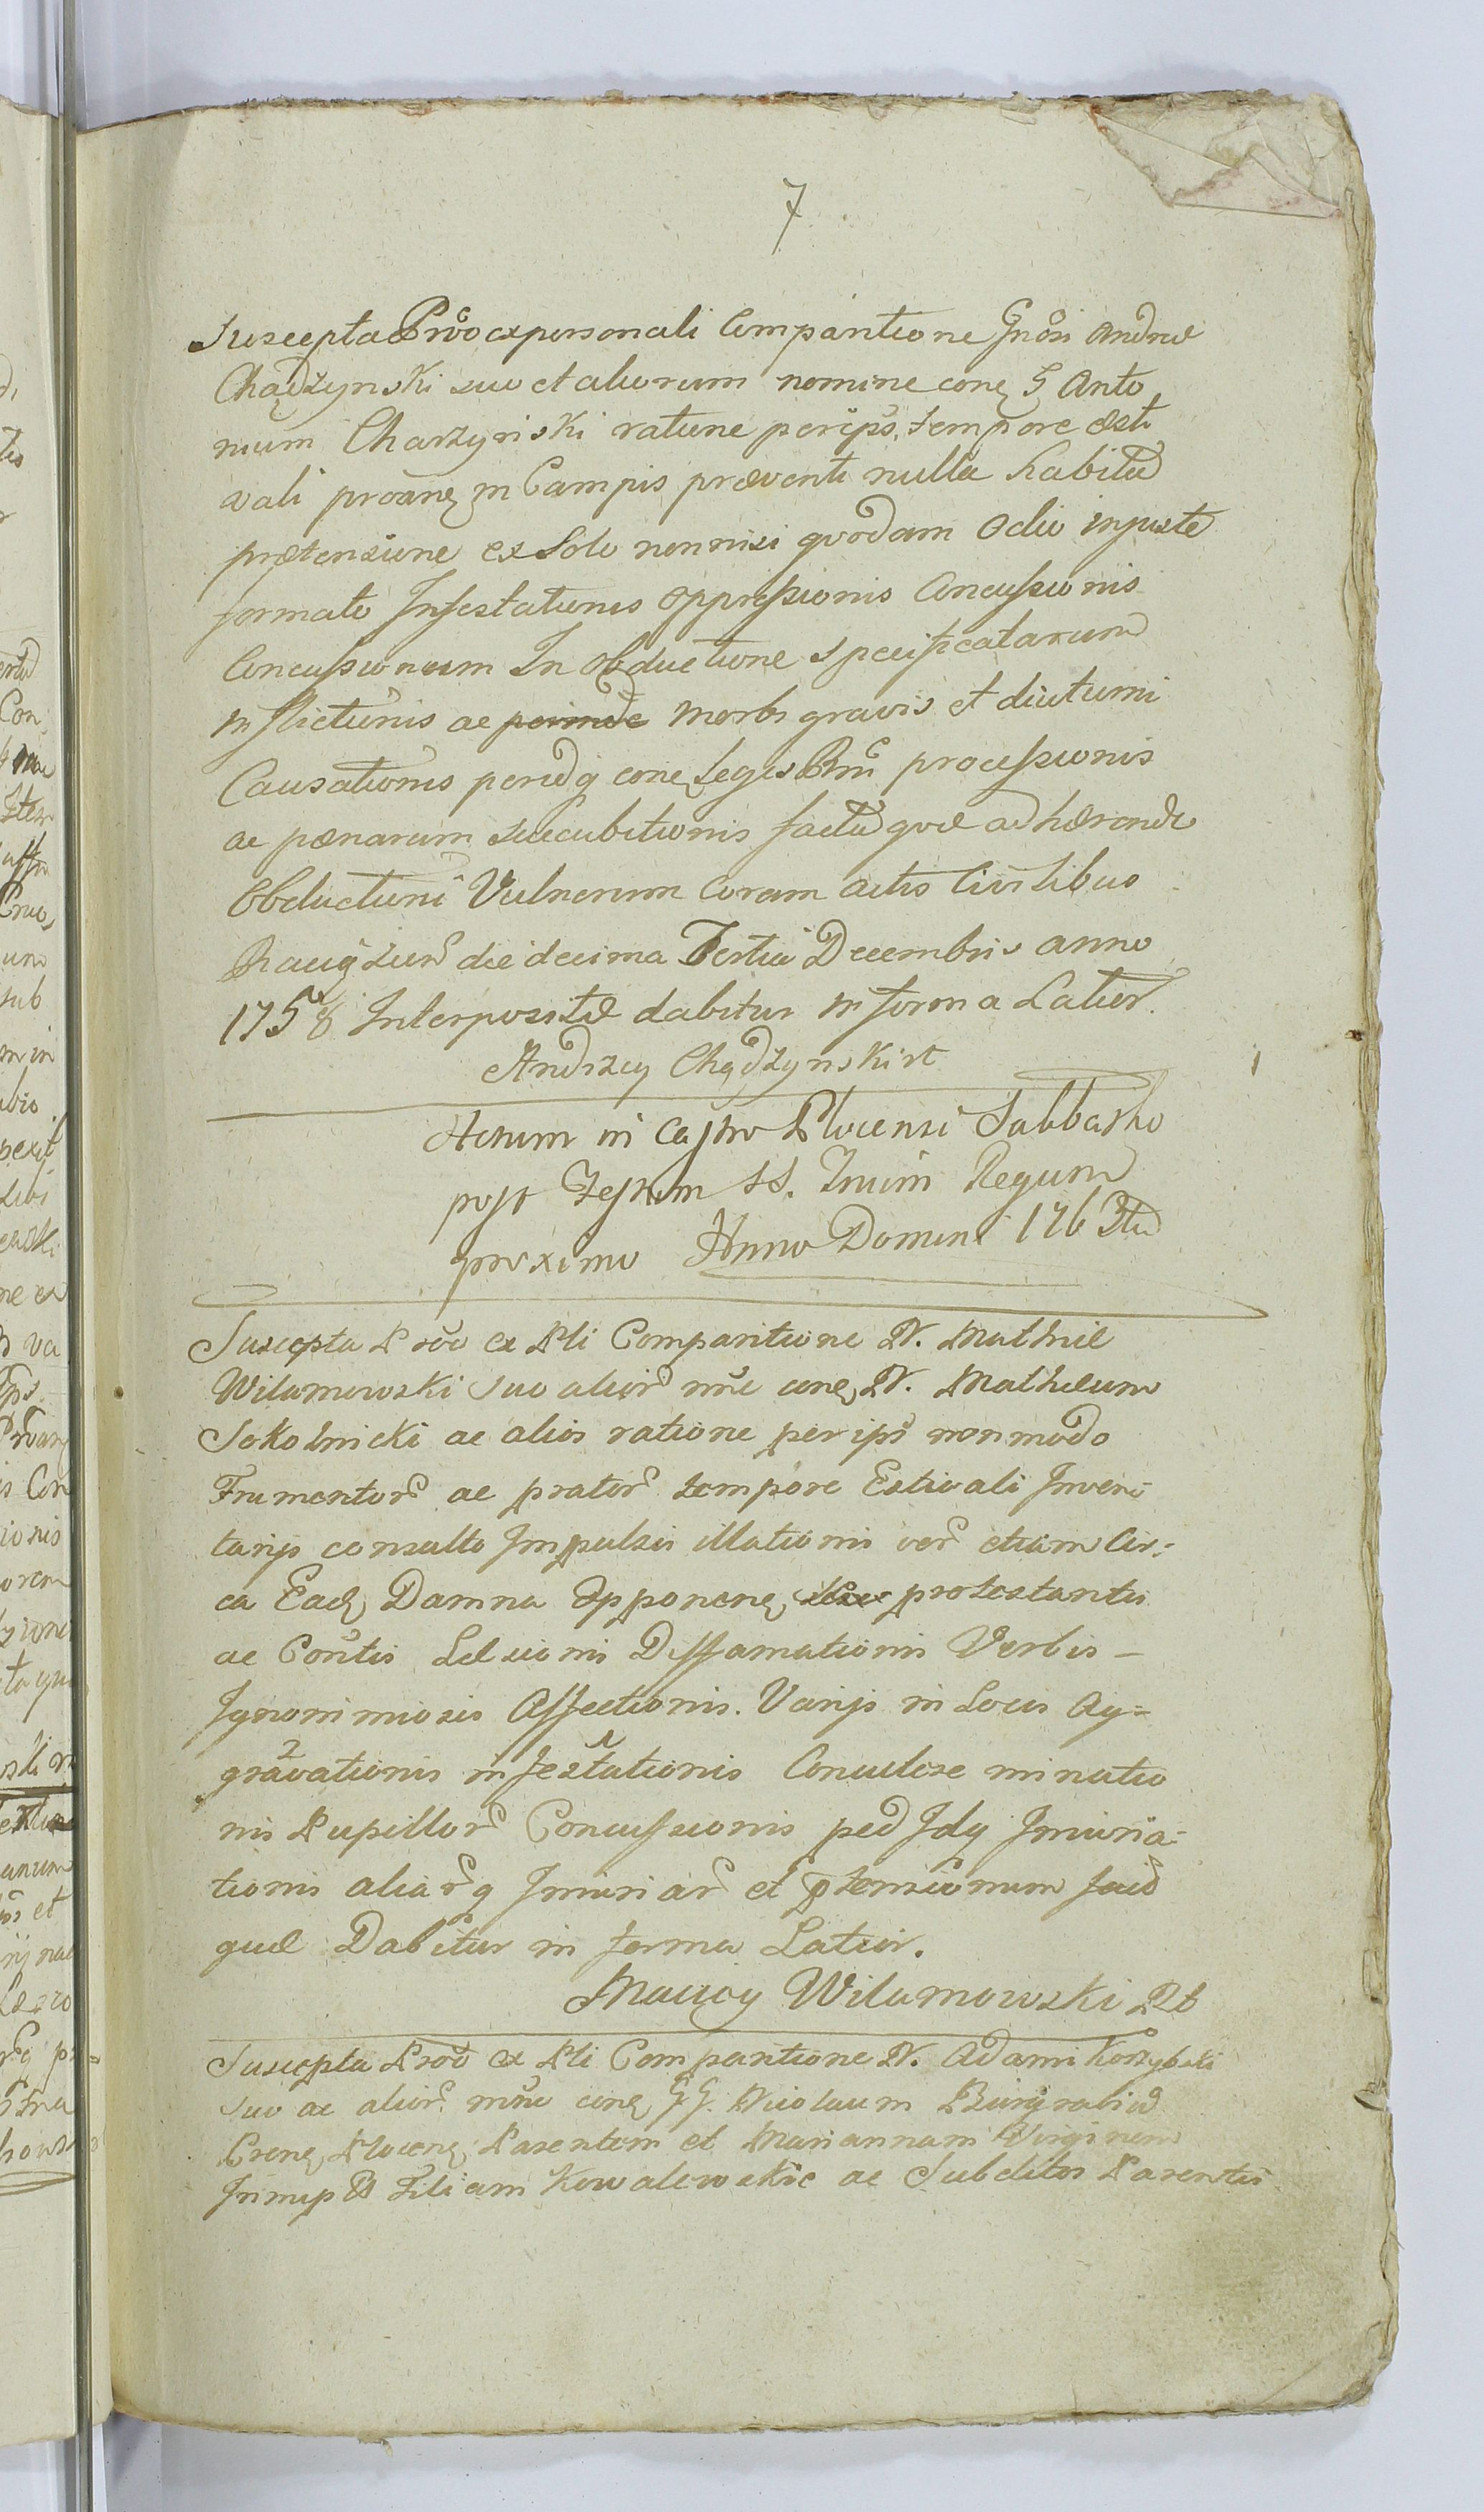 7
Suscepta Prōo ex personali Comparitione Gnosi Andreæ
Chądzynski suo et aliorum nomine conę G Anto
nium Charzynski ratione per ips. tempore æsti
vali proanę in Campis præventi nulla habita
prætensione ex Solo nonnisi quodam Odio injuste
formato Infestationis oppressionis Concussionis
Concussionum In obductione specificatarum
inflictionis ac morbi gravis et diuturni
Causationis conę Legis processionis
ac pænarum succubitionis facta quæ adhærendo
Obductioni Vulnerum Coram actis Civilibus
Raciąziens die decima Tertia Decembris anno
1758 Interpositæ dabitur in forma Latior.
Andrzey Chądzynski mp
Actum in Castro Plocensi Sabbatho
post Festum SS. Trium Regum
proximo Anno Domini 1763tio
Suscepta Prōo ex Pli Comparitione N. Mathiæ
Wilamowski suo alior nne conę N. Mathæum
Sokolnicki ac alios ratione per ips non modo
Frumentor ac prator tempore Estivali Inven-
tarijs consulto Impulsis illationis ver etiam Cir=
ca Eadę Damna Opponenę protestantis
ac Contis Læsionis Diffamationis Verbis -
Ignominiosis Affectionis. Varijs in Locis Ag=
gravationis infestationis Conculose minatio
nis Pupillor Concussionis Injuria=
tionis aliarq Injuriar et ptensionum facta
quæ Dabitur in forma Latior.
Maciey Wilamowski
Suscepta Prōo ex Pli Comparitione N. Adami Korzybski
suo ac alior. nne conę GG. Nicolaum Burgrabiu
Crenę Plocenę Parentem et Mariannam Virginem
Filiam Kowalewskie ac Subditos Parentis